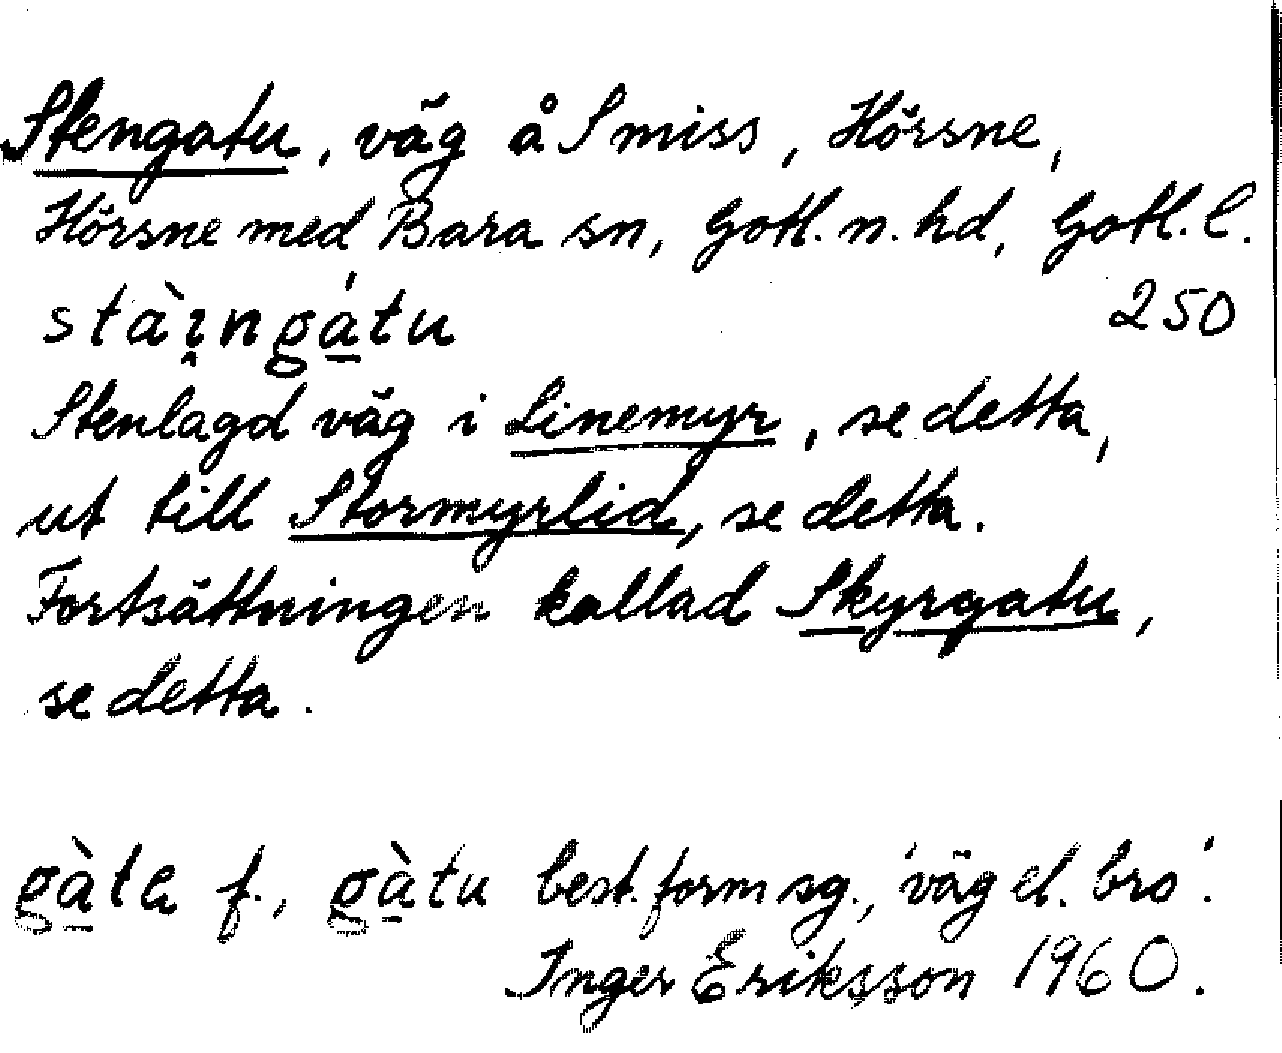 Stengatu, väg å Smiss, Hörsne,
Hörsne med Bara sn, Gotl. n. hd, Gotl. l.
stàɪ̯ngá̱tu 250
Stenlagd väg i Linemyr, se detta,
ut till Stormyrlid, se detta.
Fortsättningen kallad Skyrgatu,
se detta.
gà̱ta f., gà̱tu best. form sg., 'väg el. bro'.
Inger Eriksson 1960.